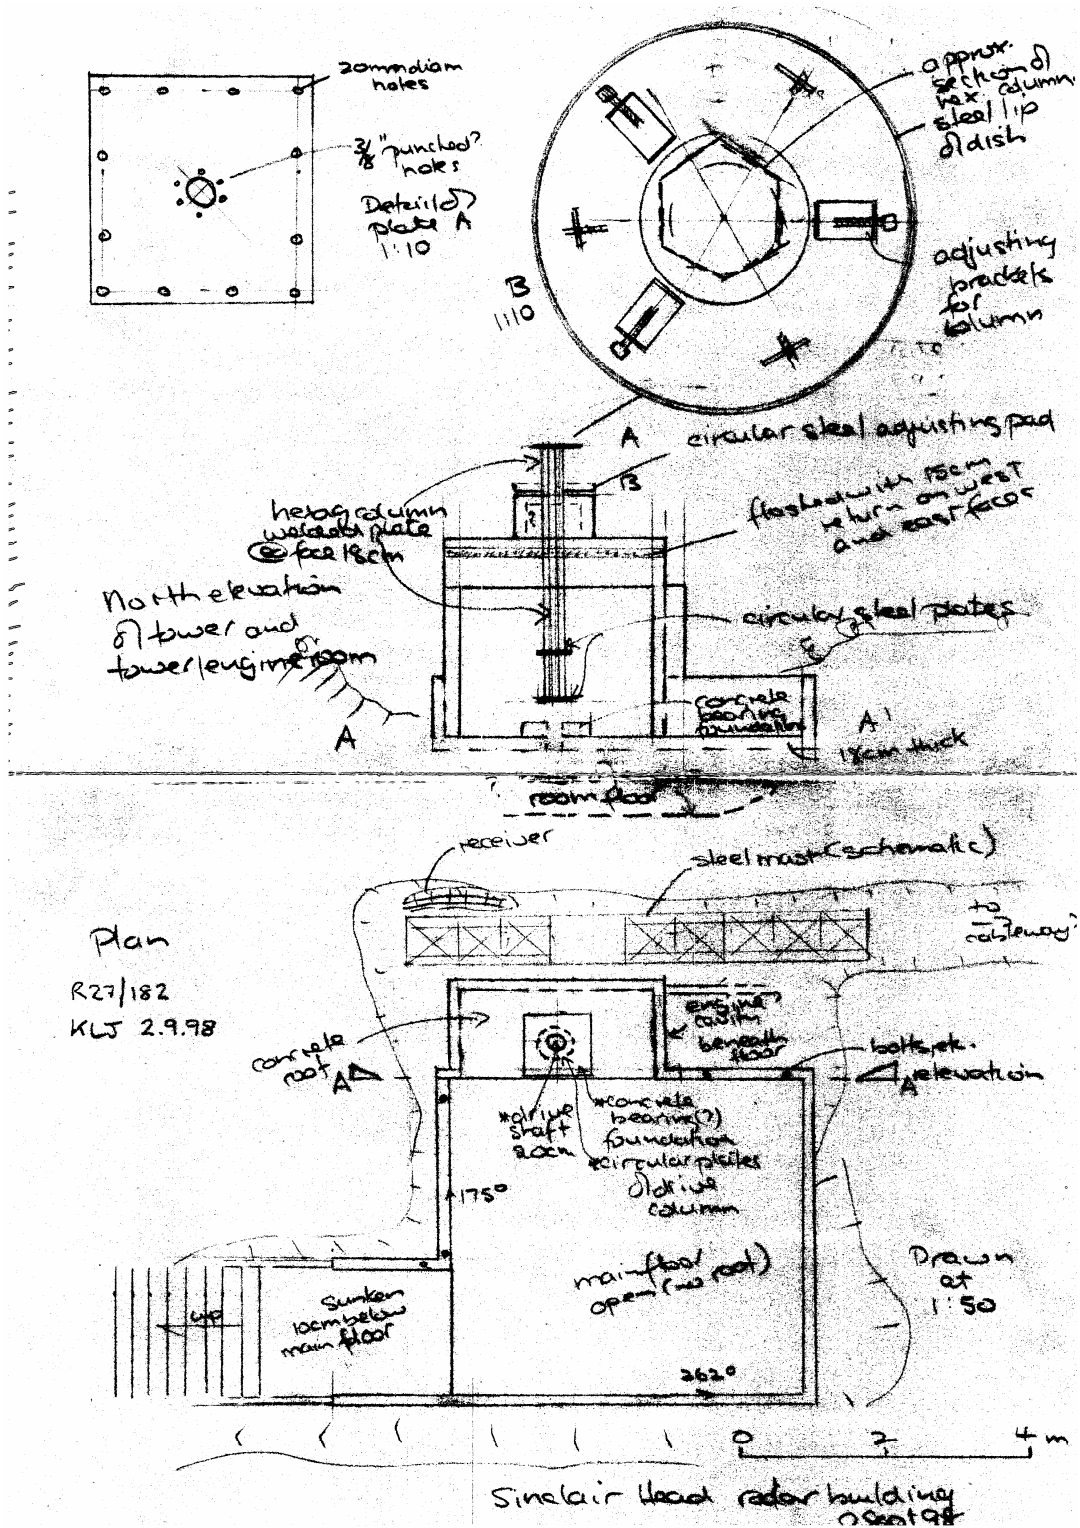 20mm diam
holes
3/8 "punched?
holes
Detail of
plate A
1:10
approx.
section of
hex. column
steel lip
of dish
adjusting
brackets
for
column
B
1:10
A
circular steel adjusting pad
B
hexag column
welded plate
@ face 18cm
flashed with 15cm
return on west
and east faces
North elevation
of tower and
tower/engine room
circular steel plates
concrete
bearing
foundation
A
A'
18cm thick
room floor
receiver
steel mast (schematic)
to
cableway?
Plan
R27/182
KLJ 2.9.98
concrete
roof
engine?
cavity
beneath
floor
bolts, etc.
A
A'
elevation
*drive
shaft
20cm
*concrete
bearing(?)
foundation
*circular plates
of drive
column
175°
main floor
open (no roof)
Drawn
at
1:50
up
sunken
10cm below
main floor
262°
0 2 4 m
Sinclair Head radar building
2 Sept 98